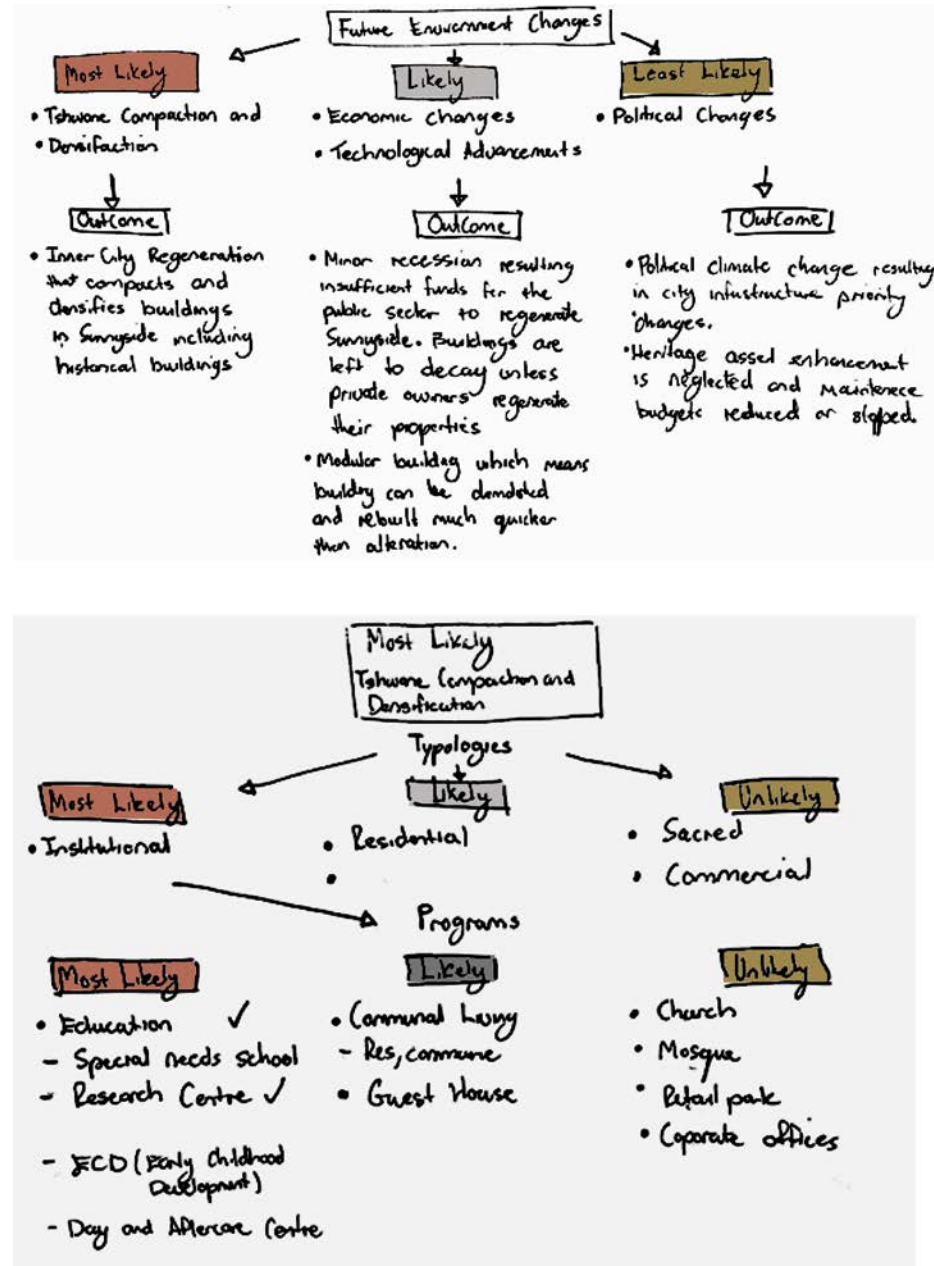 Future Environment Changes
Most Likely
• Tshwane Compaction and
• Densifaction
Outcome
• Inner City Regeneration
that compacts and
densifies buildings
in Sunnyside including
historical buildings
Likely
• Economic changes
• Technological Advancements
Outcome
• Minor recession resulting
insufficient funds for the
public sector to regenerate
Sunnyside. Buildings are
left to decay unless
private owners regenerate
their properties
• Modular building which means
building can be demolished
and rebuilt much quicker
than alteration.
Least Likely
• Political Changes
Outcome
• Political climate change resulting
in city infustructure priority
changes.
• Heritage asset enhancement
is neglected and maintenece
budgets reduced or stopped.
Most Likely
Tshwane Compaction and
Densification
Typologies
Most Likely
• Institutional
Likely
• Residential
•
Unlikely
• Sacred
• Commercial
Programs
Most Likely
• Education ✓
- Special needs school
- Research Centre ✓
- ECD (Early Childhood
Development)
- Day and Aftercare Centre
Likely
• Communal Living
- Res, commune
• Guest House
Unlikely
• Church
• Mosque
• Retail park
• Coporate offices